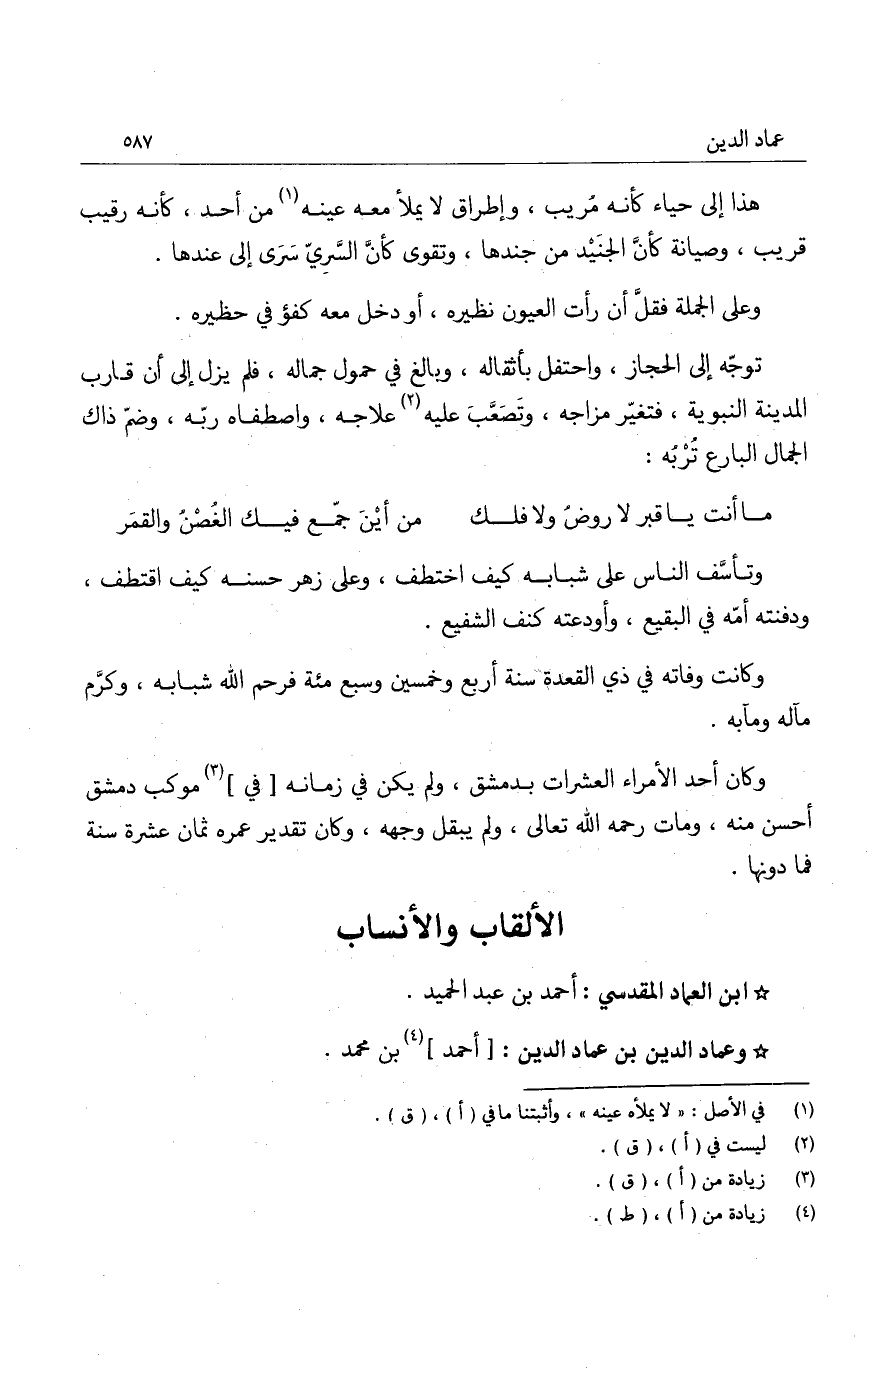 عماد الدين ٥٨٧
هذا إلى حياء كأنه مُريب ، وإطراق لا يملأ معه عينه(١) من أحد ، كأنه رقيب
قريب ، وصيانة كأنَّ الجنَيْد من جندها ، وتقوى كأنَّ السَّريّ سَرَى إلى عندها .
وعلى الجملة فقلَّ أن رأت العيون نظيره ، أو دخل معه كفؤ في حظيره .
توجّه إلى الحجاز ، واحتفل بأثقاله ، وبالغ في حمول جماله ، فلم يزل إلى أن قارب
المدينة النبوية ، فتغيّر مزاجه ، وتَصَعَّبَ عليه(٢) علاجه ، واصطفاه ربّه ، وضمّ ذاك
الجمال البارع تُرْبُه :
ما أنت يا قبر لا روضٌ ولا فلك من أيْنَ جمّع فيك الغُصْنُ والقمَر
وتأسَّف الناس على شبابه كيف اختطف ، وعلى زهر حسنه كيف اقتطف ،
ودفنته أمّه في البقيع ، وأودعته كنف الشفيع .
وكانت وفاته في ذي القعدة سنة أربع وخمسين وسبع مئة فرحم الله شبابه ، وكرَّم
مآله ومآبه .
وكان أحد الأمراء العشرات بدمشق ، ولم يكن في زمانه [ في ](٣) موكب دمشق
أحسن منه ، ومات رحمه الله تعالى ، ولم يبقل وجهه ، وكان تقدير عمره ثمان عشرة سنة
فما دونها .
الألقاب والأنساب
☆ ابن العماد المقدسي : أحمد بن عبد الحميد .
☆ وعماد الدين بن عماد الدين : [ أحمد ](٤) بن محمد .
(١) في الأصل : « لا يملأه عينه » ، وأثبتنا ما في ( أ ) ، ( ق ) .
(٢) ليست في ( أ ) ، ( ق ) .
(٣) زيادة من ( أ ) ، ( ق ) .
(٤) زيادة من ( أ ) ، ( ط ) .